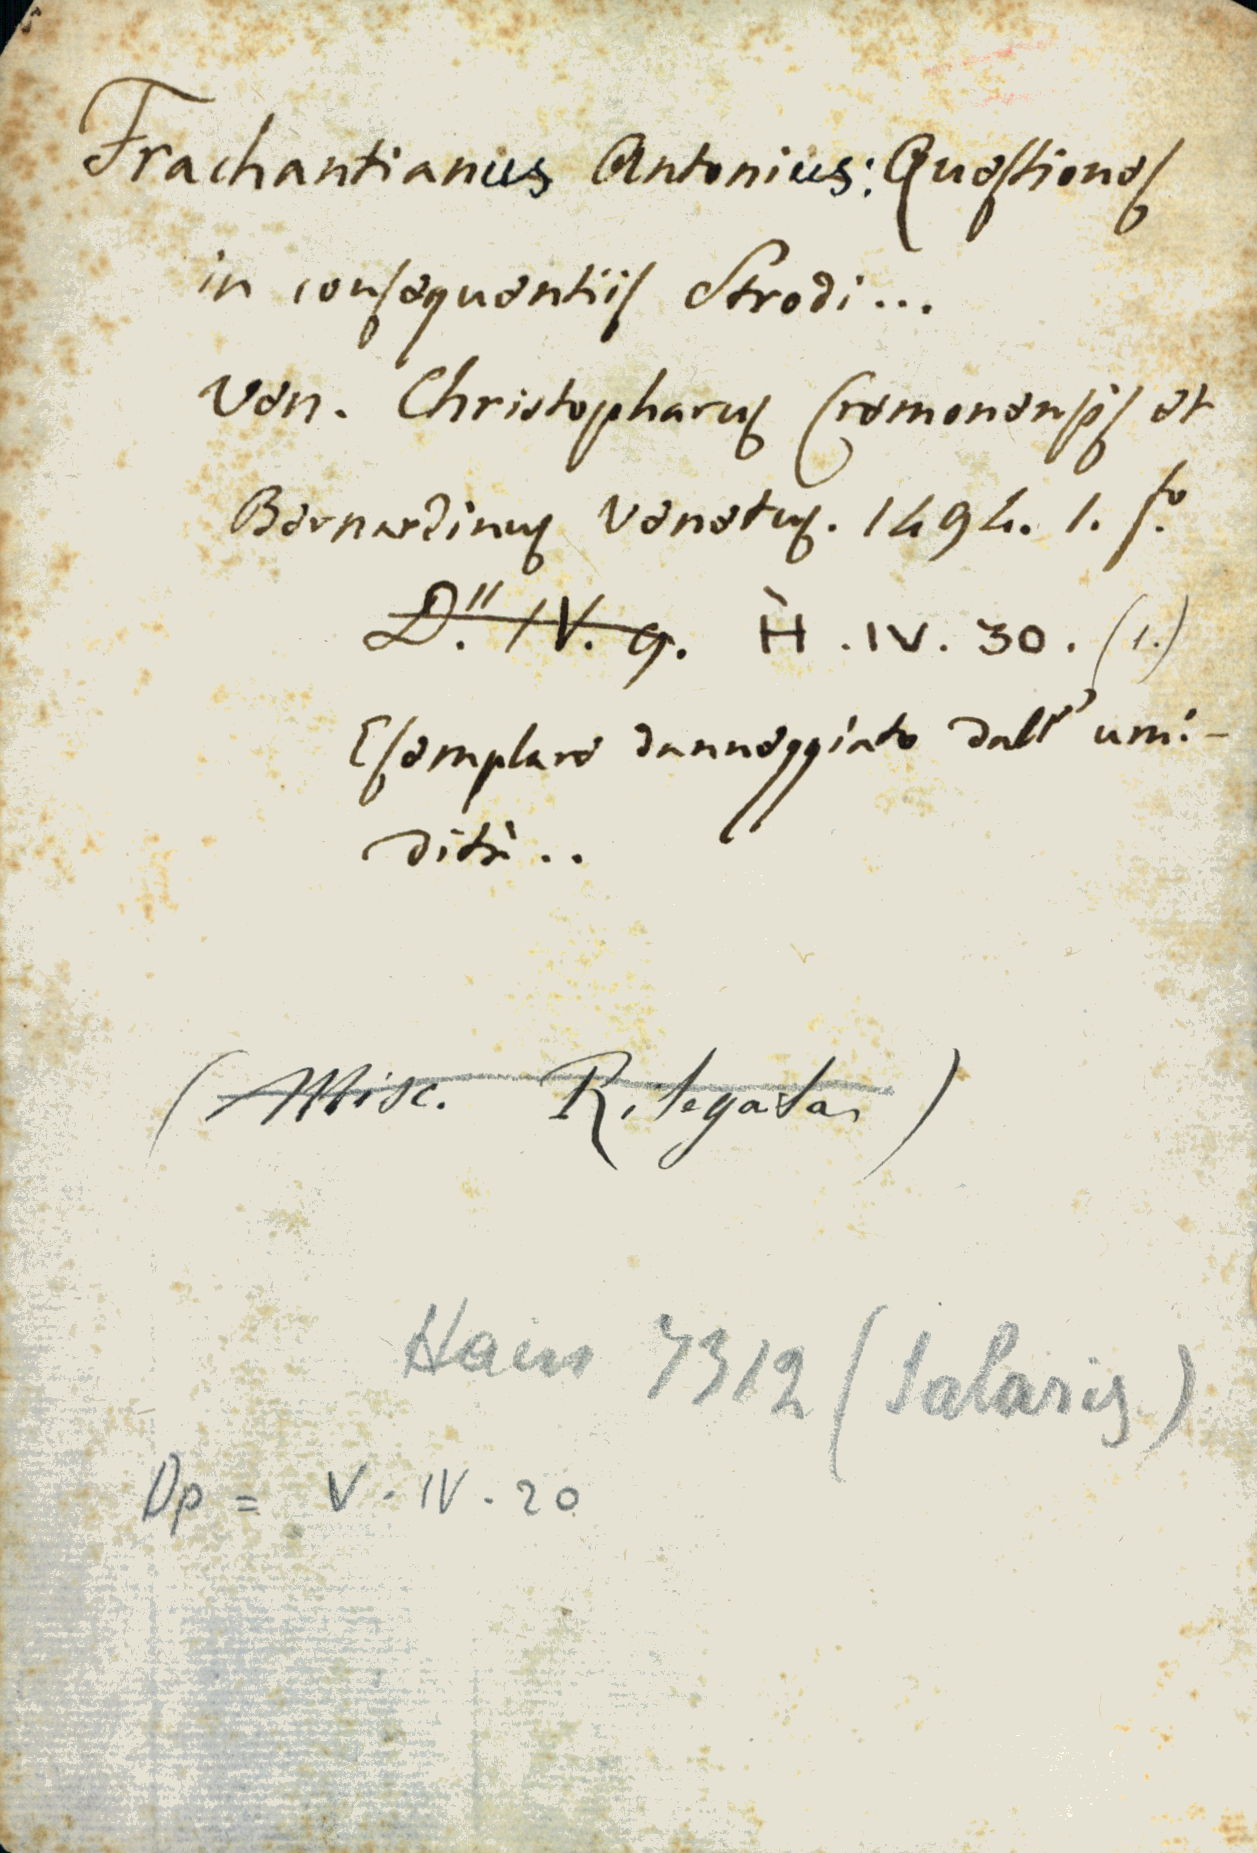 Frachantianus Antonius: Questiones
in consequentiis Strodi...
Ven. Christopharus Cremonensis et
Bernardinus Venetus. 1494. 1. fo.
D." IV. 9. H̀ .IV. 30. (1.)
Esemplare danneggiato dall' umi-
dità..
(Misc. Rilegata)
Hain 7312 (Salaris)
Dp = V. IV. 20